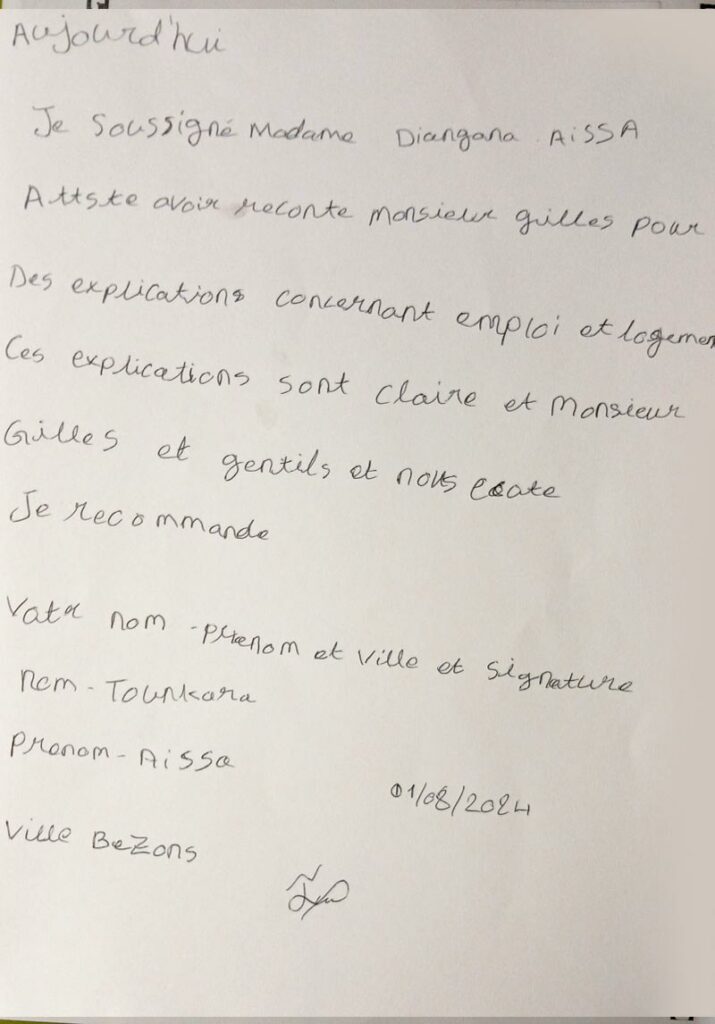 Aujourd'hui
Je soussigné Madame Diangana AiSSA
Attste avoir reconte monsieur gilles pour
Des explications concernant emploi et logemen
Ces explications sont claire et monsieur
Gilles et gentils et nous ecate
Je recommande
Vatr nom - Prenom et ville et signature
nom - Tounkara
Prenom - Aissa
01/08/2024
Ville BeZons